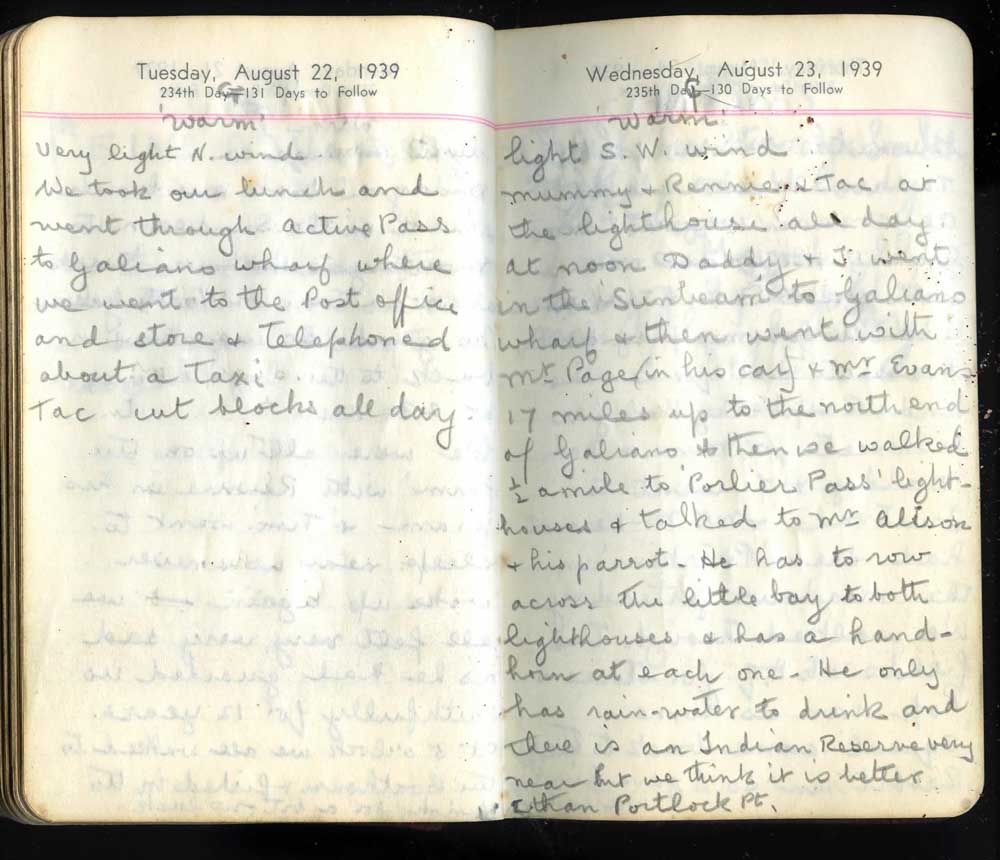 Tuesday, August 22, 1939
234th Day—131 Days to Follow
'warm'
Very light N. wind.
We took our lunch and
went through Active Pass
to Galiano wharf where
we went to the Post office
and store & Telephoned
about a Taxi.
Tac cut blocks all day.
Wednesday, August 23, 1939
235th Day—130 Days to Follow
'warm'
light S. W. wind
mummy & Rennie & Tac at
the lighthouse all day.
At noon Daddy & I went
in the 'Sunbeam' to Galiano
wharf & then went with
Mr Page (in his car) & Mr. Evans
17 miles up to the north end
of Galiano & then we walked
½ a mile to 'Porlier Pass' light-
houses & talked to Mr Alison
& his parrot. He has to row
across the little bay to both
lighthouses & has a hand-
horn at each one. He only
has rain-water to drink and
there is an Indian Reserve very
near but we think it is better
than Portlock Pt.